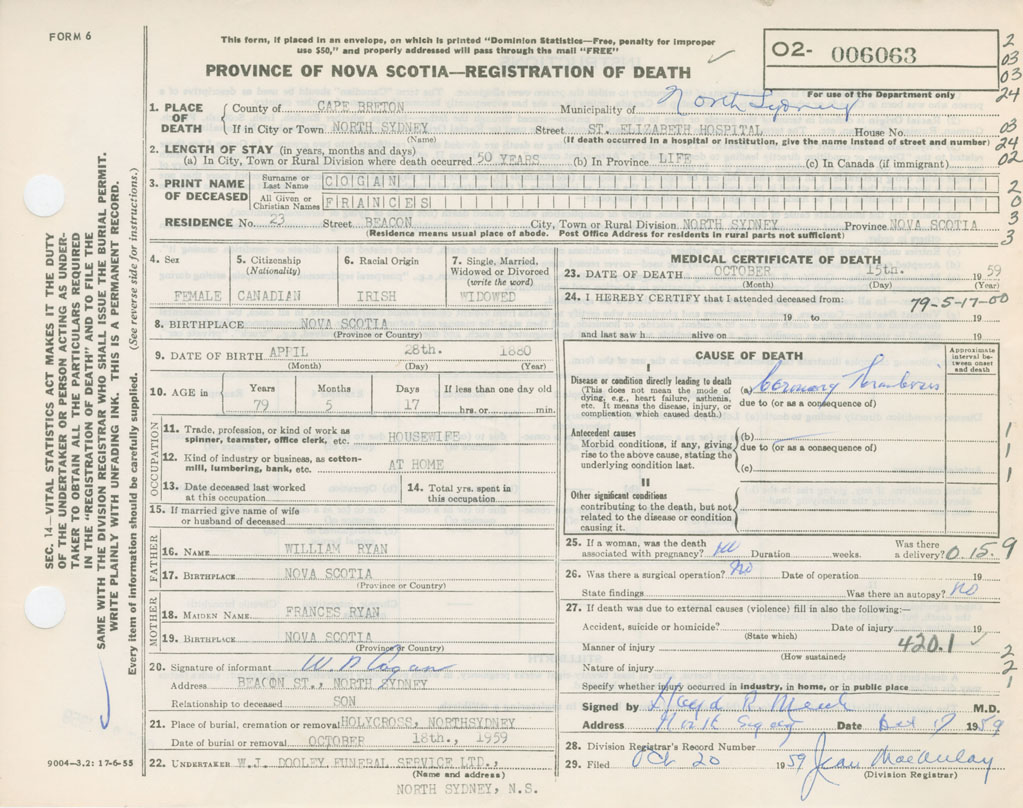 FORM 6
This form, if placed in an envelope, on which is printed "Dominion Statistics—Free, penalty for improper
use $50," and properly addressed will pass through the mail "FREE"
PROVINCE OF NOVA SCOTIA—REGISTRATION OF DEATH
02- 006063
For use of the Department only
2
03
03
24
03
24
02
2
0
3
3
SEC. 14—VITAL STATISTICS ACT MAKES IT THE DUTY
OF THE UNDERTAKER OR PERSON ACTING AS UNDER-
TAKER TO OBTAIN ALL THE PARTICULARS REQUIRED
IN THE "REGISTRATION OF DEATH" AND TO FILE THE
SAME WITH THE DIVISION REGISTRAR WHO SHALL ISSUE THE BURIAL PERMIT.
WRITE PLAINLY WITH UNFADING INK. THIS IS A PERMANENT RECORD.
Every item of information should be carefully supplied. (See reverse side for instructions.)
1. PLACE OF DEATH County of CAPE BRETON Municipality of North Sydney
If in City or Town NORTH SYDNEY Street ST. ELIZABETH HOSPITAL House No.
(Name) (If death occurred in a hospital or institution, give the name instead of street and number)
2. LENGTH OF STAY (in years, months and days)
(a) In City, Town or Rural Division where death occurred 50 YEARS (b) In Province LIFE (c) In Canada (if immigrant)
3. PRINT NAME OF DECEASED Surname or Last Name COGAN
All Given or Christian Names FRANCES
RESIDENCE No. 23 Street BEACON City, Town or Rural Division NORTH SYDNEY Province NOVA SCOTIA
(Residence means usual place of abode. Post Office Address for residents in rural parts not sufficient)
4. Sex 5. Citizenship (Nationality) 6. Racial Origin 7. Single, Married, Widowed or Divorced (write the word)
FEMALE CANADIAN IRISH WIDOWED
8. BIRTHPLACE NOVA SCOTIA
(Province or Country)
9. DATE OF BIRTH APRIL 28th. 1880
(Month) (Day) (Year)
10. AGE in Years Months Days If less than one day old
79 5 17 hrs. or min.
OCCUPATION
11. Trade, profession, or kind of work as
spinner, teamster, office clerk, etc. HOUSEWIFE
12. Kind of industry or business, as cotton-
mill, lumbering, bank, etc. AT HOME
13. Date deceased last worked
at this occupation
14. Total yrs. spent in
this occupation
15. If married give name of wife
or husband of deceased
FATHER
16. NAME WILLIAM RYAN
17. BIRTHPLACE NOVA SCOTIA
(Province or Country)
MOTHER
18. MAIDEN NAME FRANCES RYAN
19. BIRTHPLACE NOVA SCOTIA
(Province or Country)
20. Signature of informant W. P. Cogan
Address BEACON ST., NORTH SYDNEY
Relationship to deceased SON
21. Place of burial, cremation or removal HOLYCROSS, NORTHSYDNEY
Date of burial or removal OCTOBER 18th., 1959
22. UNDERTAKER W.J. DOOLEY FUNERAL SERVICE LTD.,
(Name and address)
NORTH SYDNEY, N.S.
9004—3.2: 17-6-55
MEDICAL CERTIFICATE OF DEATH
23. DATE OF DEATH OCTOBER 15th. 1959
(Month) (Day) (Year)
24. I HEREBY CERTIFY that I attended deceased from:
79-5-17-00
19 to 19
and last saw h alive on 19
CAUSE OF DEATH
Approximate interval between onset and death
I
Disease or condition directly leading to death
(This does not mean the mode of
dying, e.g., heart failure, asthenia,
etc. It means the disease, injury, or
complication which caused death.)
(a) Coronary Thrombosis
due to (or as a consequence of)
Antecedent causes
Morbid conditions, if any, giving
rise to the above cause, stating the
underlying condition last.
(b)
due to (or as a consequence of)
(c)
1
1
1
II
Other significant conditions
contributing to the death, but not
related to the disease or condition
causing it.
25. If a woman, was the death
associated with pregnancy? no Duration weeks. Was there
a delivery? 0.15.9
26. Was there a surgical operation? No Date of operation 19
State findings Was there an autopsy? no
27. If death was due to external causes (violence) fill in also the following:—
Accident, suicide or homicide? Date of injury 19
(State which)
Manner of injury 420.1
(How sustained)
Nature of injury
2
2
1
Specify whether injury occurred in industry, in home, or in public place
Signed by R. M.D.
Address North Sydney Date Oct 17 1959
28. Division Registrar's Record Number
29. Filed Oct 20 1959 Jean MacAulay
(Division Registrar)